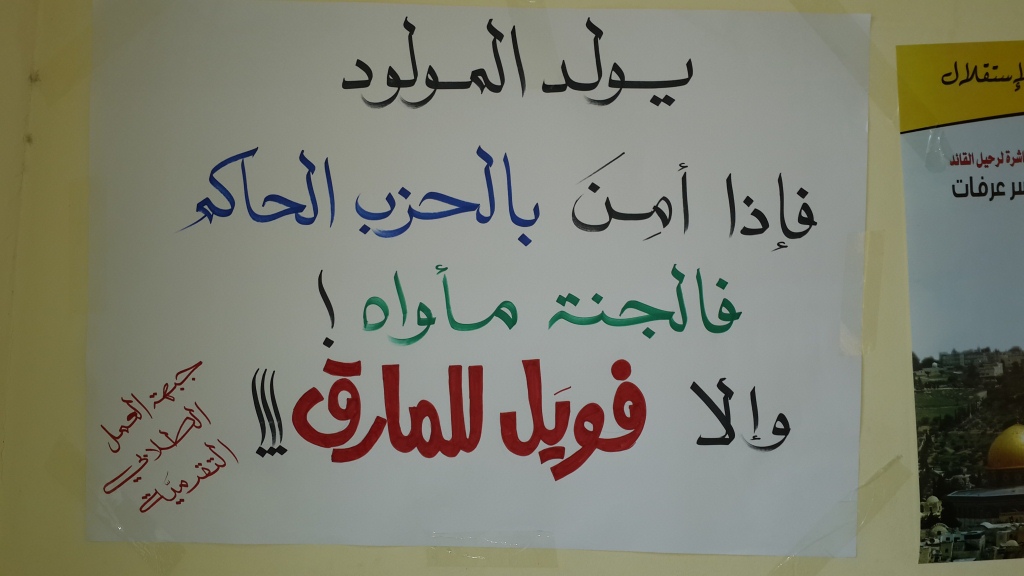 يولد المولود
فإذا أمِنَ بالحزب الحاكم
فالجنة مأواه !
وإلا فويَل للمارق !!!
جبهة العمل
الطلابي
التقدميَّة
لإستقلال
اشرة لرحيل القائد
سر عرفات